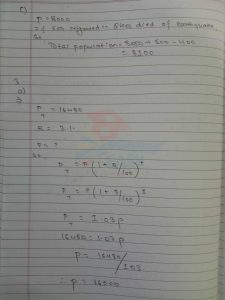 c) P = 8000
If 500 migrated in & 400 died of earthquake
So,
Total population = 8000 + 500 - 400
= 8100
3.
a)
⇒
P_T = 16480
R = 3%
P = ?
So,
P_T = P(1 + R/100)^T
P_T = P(1 + 3/100)^1
P_T = 1.03P
16480 = 1.03P
P = 16480/1.03
∴ P = 16000